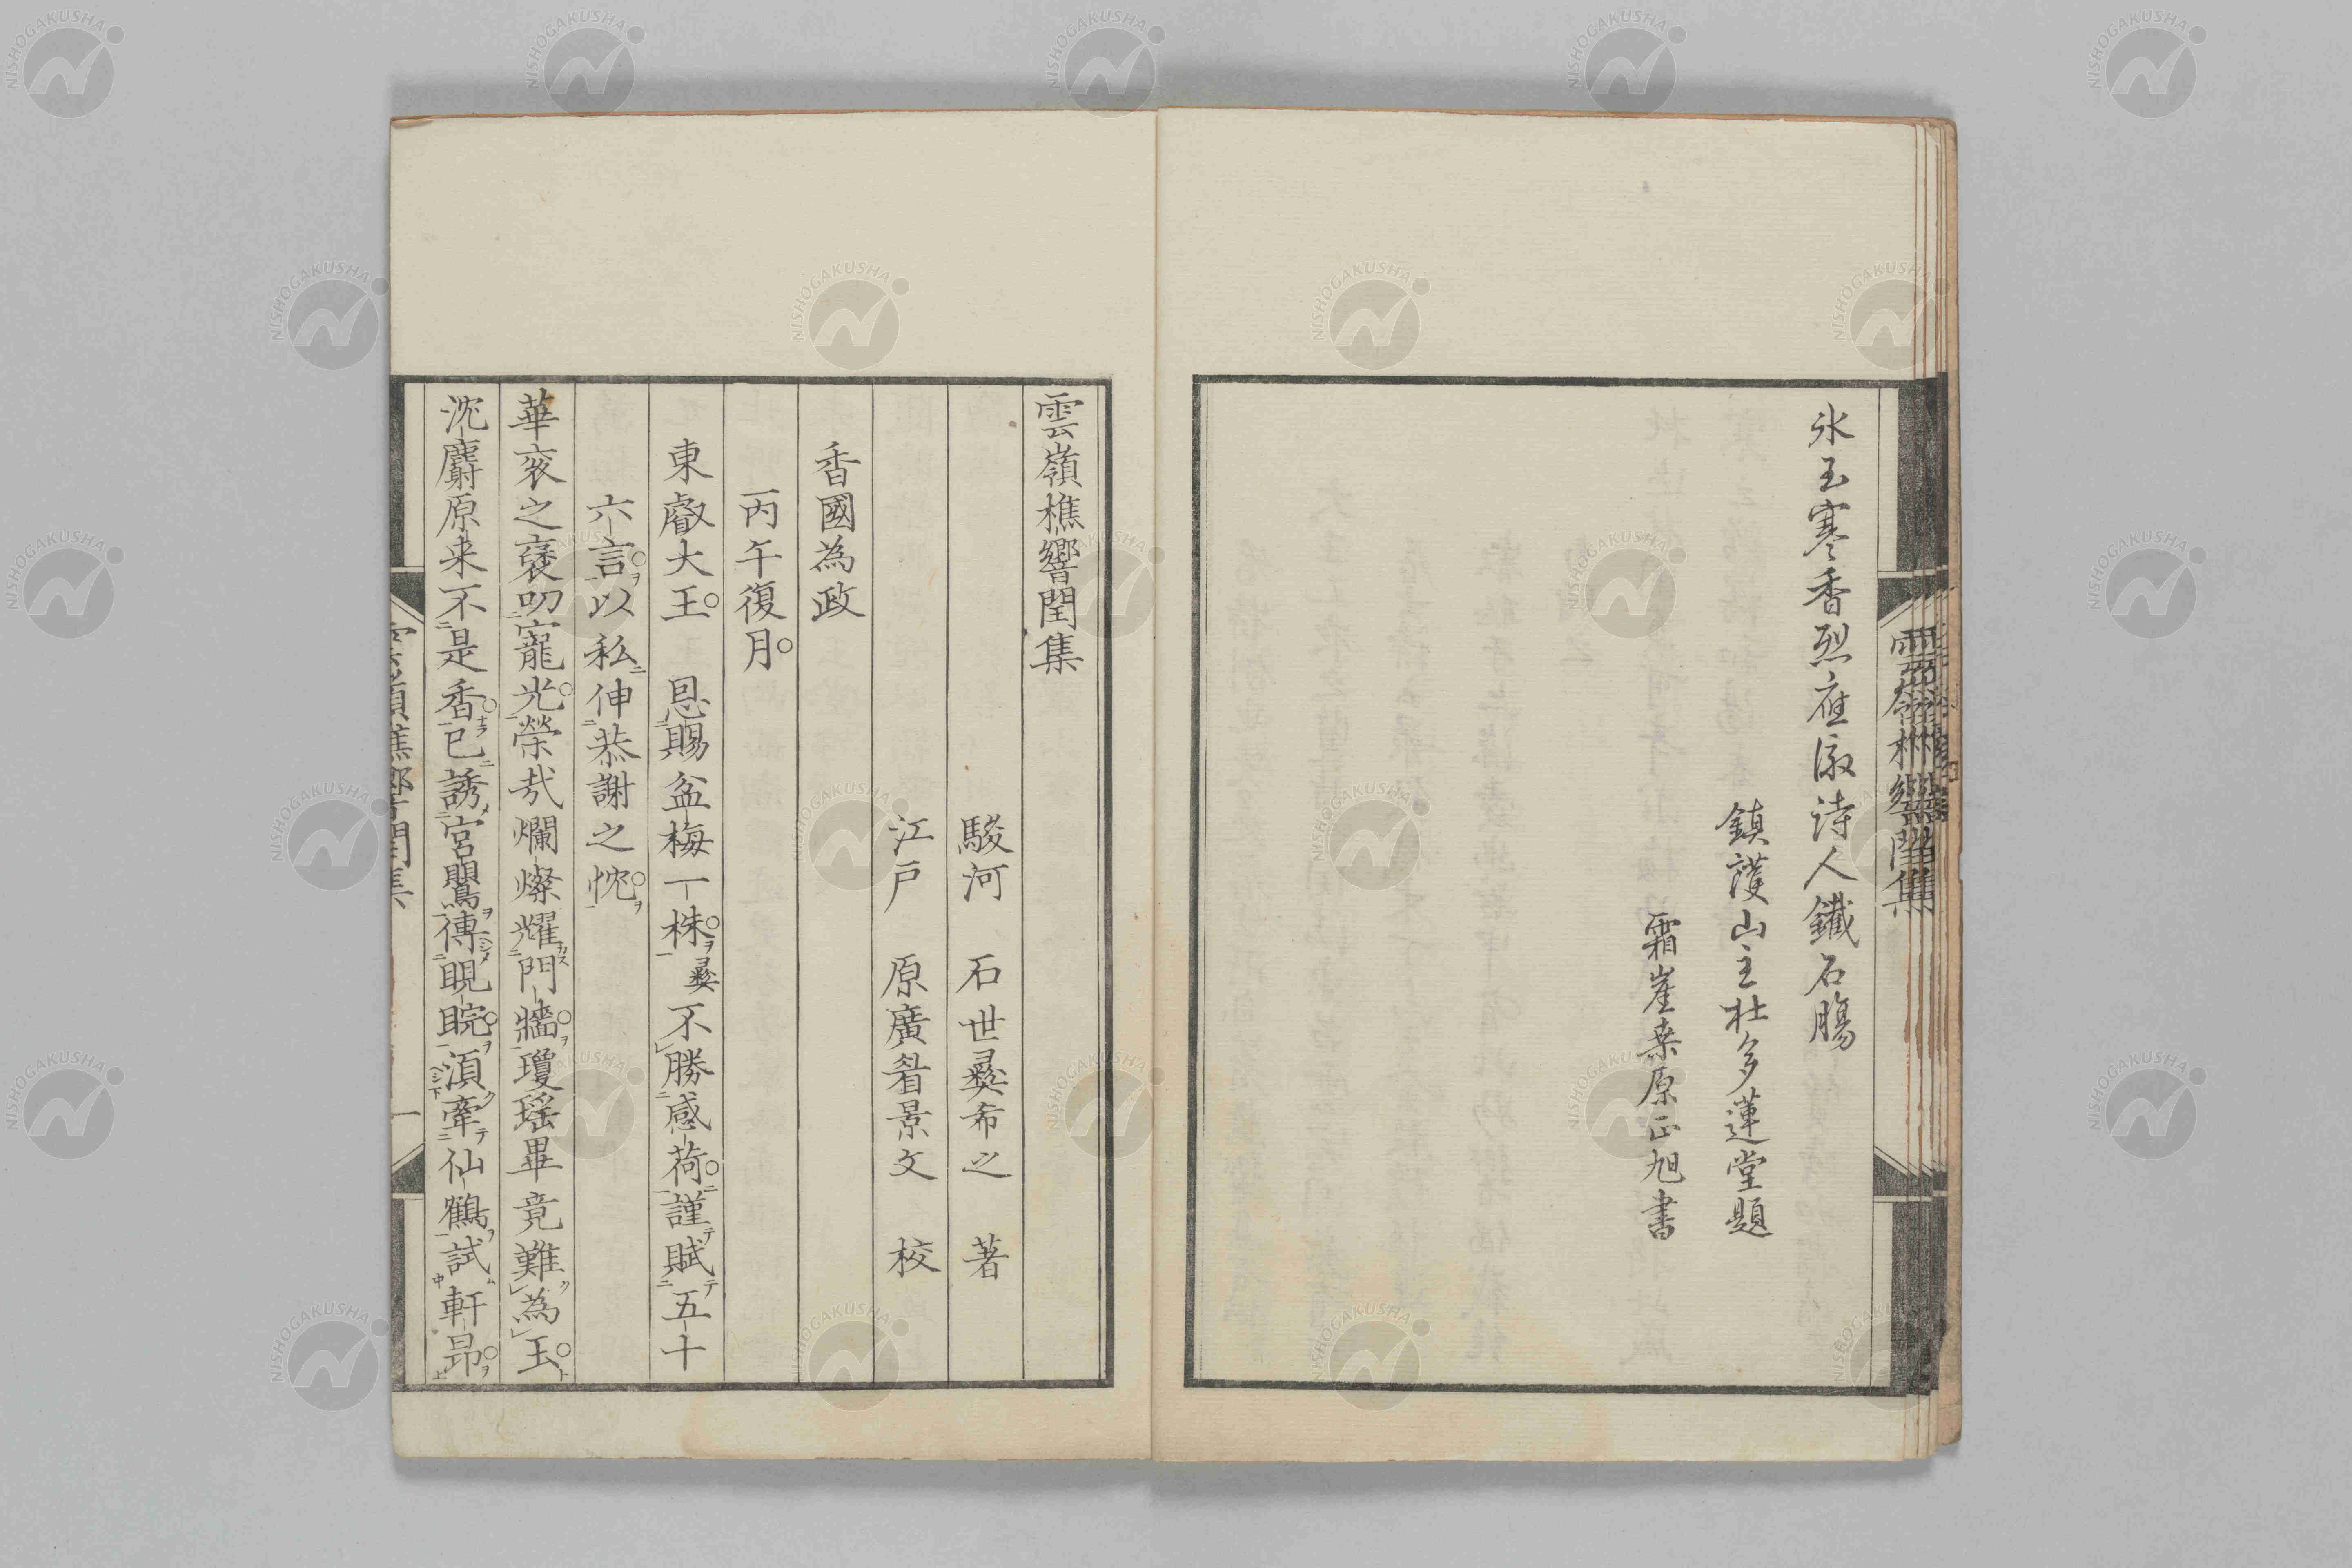 氷玉寒香烈應淑詩人鐵石腸
鎮護山主杜多蓮堂題
霜崖桒原正旭書
雲嶺樵響閏集
駿河 石世彜希之 著
江戸 原廣眘景文 校
香國為政
丙午復月
東叡大王 恩賜盆梅一株彜不勝感荷謹賦五十
六言以私伸恭謝之忱
華衮之襃叨寵光榮哉爛燦耀門牆瓊瑶畢竟難為玉
沈麝原来不是香已誘宮鸎傳睍睆湏牽仙鶴試軒昂
雲嶺樵響閏集
一